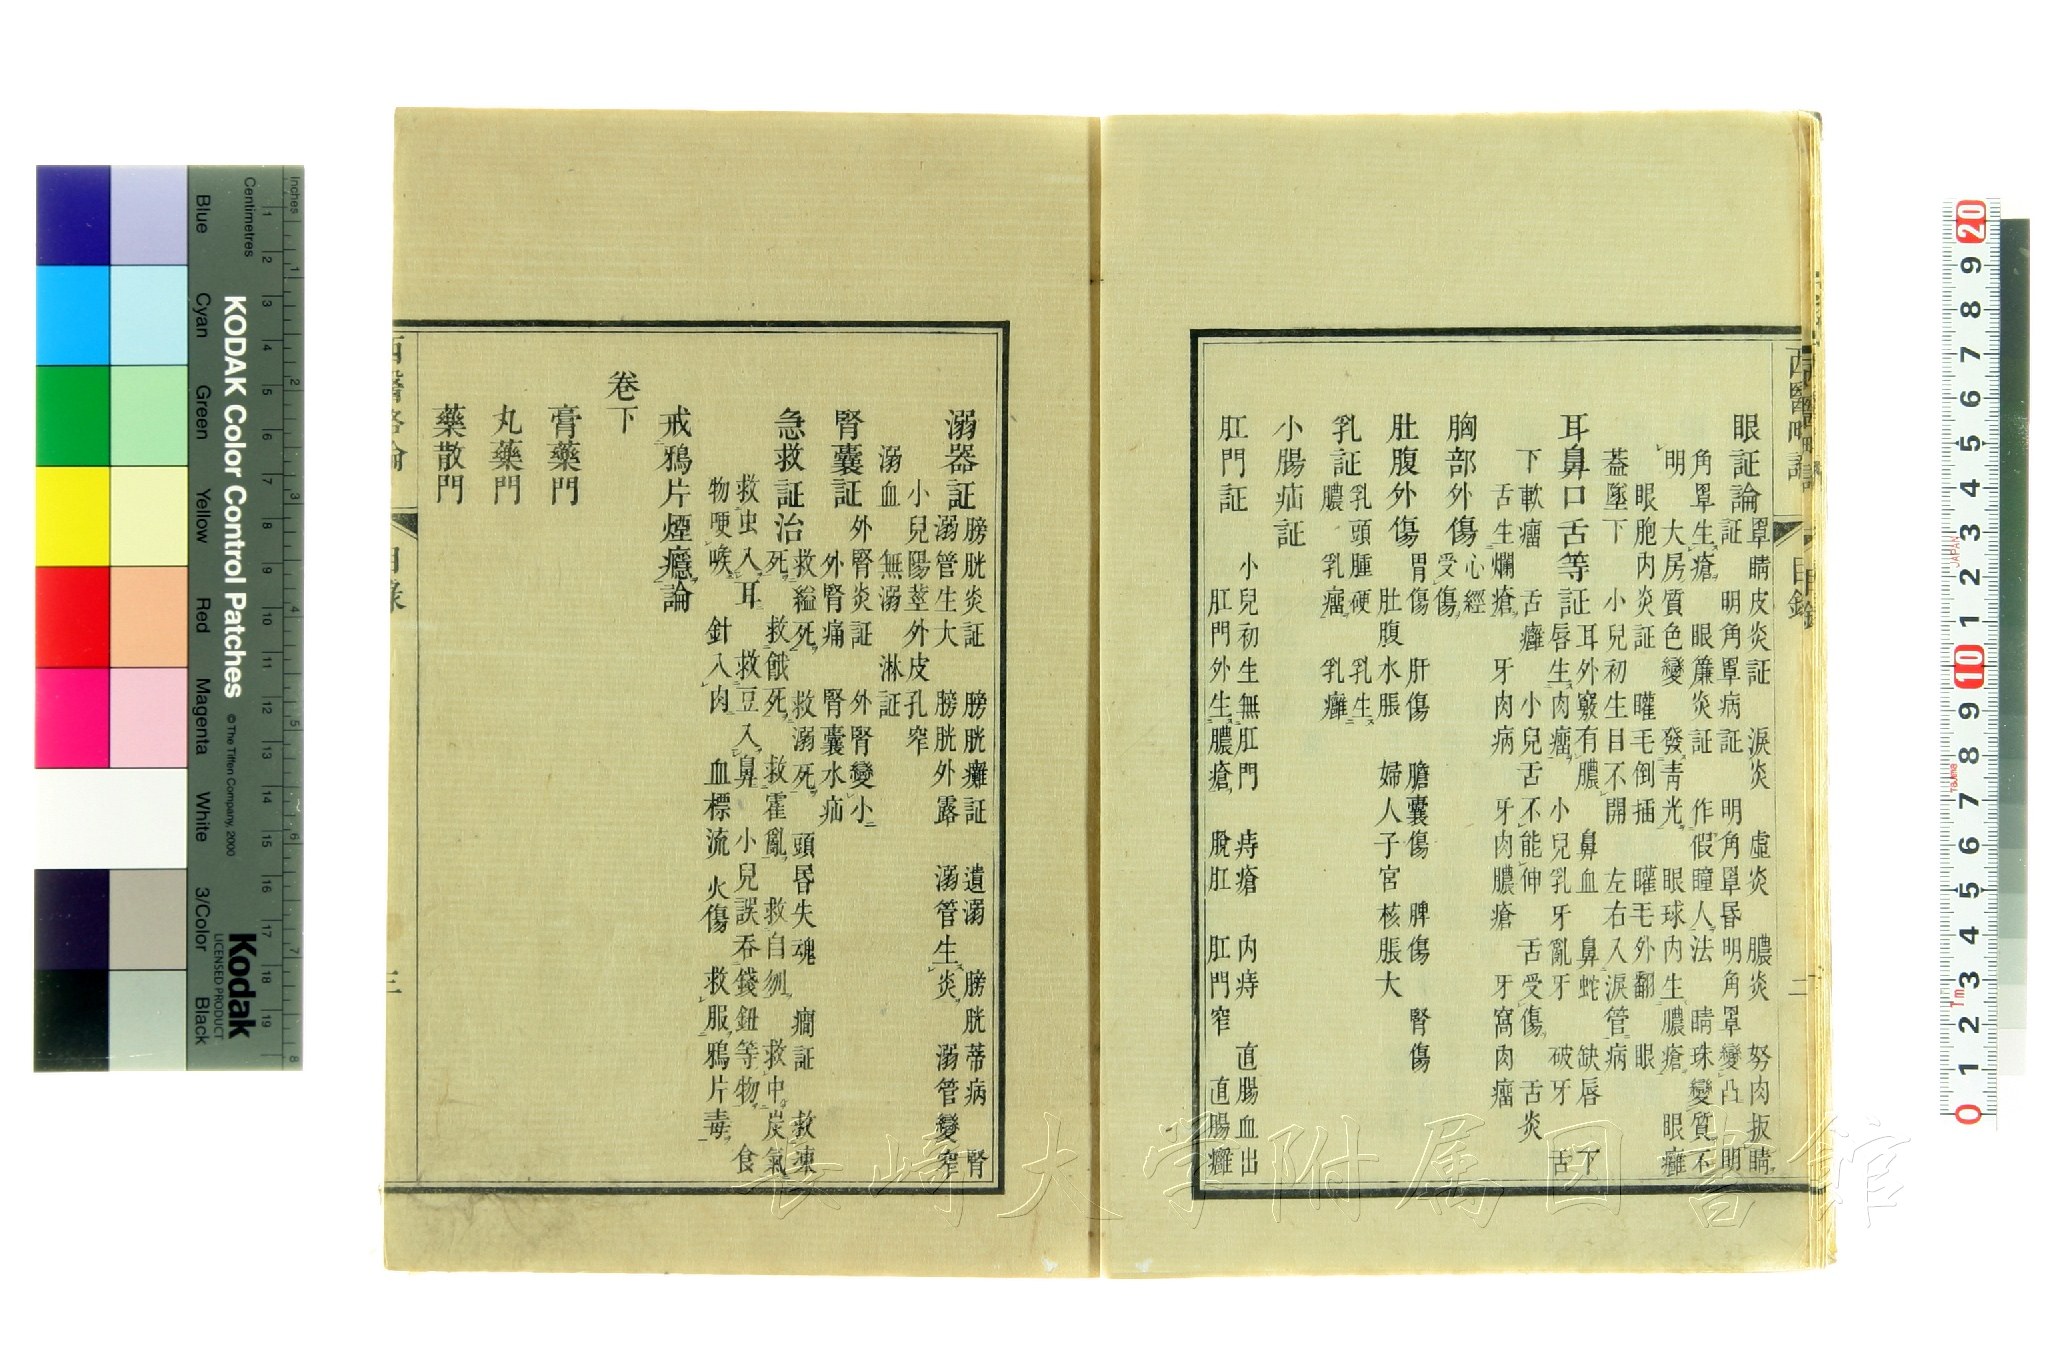 西醫略論
目錄
二
眼証論
罩睛皮炎証 淚炎 虛炎 膿炎 努肉扳睛
証 明角罩病証 明角罩昏 明角罩變凸 明
角罩生瘡 眼簾炎証 作假瞳人法 睛珠變質不
明 大房質色變 發青光 眼球內生膿瘡 眼癰
眼胞內炎証 矐毛倒插 矐毛外翻 眼
葢墜下 小兒初生目不開 左右入淚管病
耳鼻口舌等証
耳外竅有膿 鼻血 鼻蛇 缺唇 下
唇生肉瘤 小兒乳牙亂牙 破牙 舌
下軟瘤 舌癰 小兒舌不能伸 舌受傷 舌炎
舌生爛瘡 牙肉病 牙肉膿瘡 牙窩肉瘤
胸部外傷
心經
受傷
肚腹外傷
胃傷 肝傷 膽囊傷 脾傷 腎傷
肚腹水脹 婦人子宮核脹大
乳証
乳頭腫硬 乳生
膿 乳瘤 乳癰
小腸疝証
肛門証
小兒初生無肛門 痔瘡 內痔 直腸血出
肛門外生膿瘡 脫肛 肛門窄 直腸癰
溺器証
膀胱炎証 膀胱癰証 遺溺 膀胱蒂病 腎
溺管生大 膀胱外露 溺管生炎 溺管變窄
小兒陽莖外皮孔窄
溺血 無溺 淋証
腎囊証
外腎炎証 外腎變小
外腎痛 腎囊水疝
急救証治
救縊死 救溺死 頭昏失魂 癎証 救凍
死 救餓死 救霍亂 救自刎 救中炭氣
救虫入耳 救豆入鼻 小兒誤吞錢鈕等物 食
物哽喉 針入肉 血標流 火傷 救服鴉片毒
戒鴉片煙癮論
卷下
膏藥門
丸藥門
藥散門
西醫略論
目錄
三
長崎大学附属図書館
KODAK Color Control Patches
© The Tiffen Company, 2000
Kodak
LICENSED PRODUCT
Inches
Centimetres
1 2 3 4 5 6 7 8 9 10 11 12 13 14 15 16 17 18 19
1 2 3 4 5 6 7 8
Blue Cyan Green Yellow Red Magenta White 3/Color Black
0 1 2 3 4 5 6 7 8 9 10 1 2 3 4 5 6 7 8 9 20
JAPAN